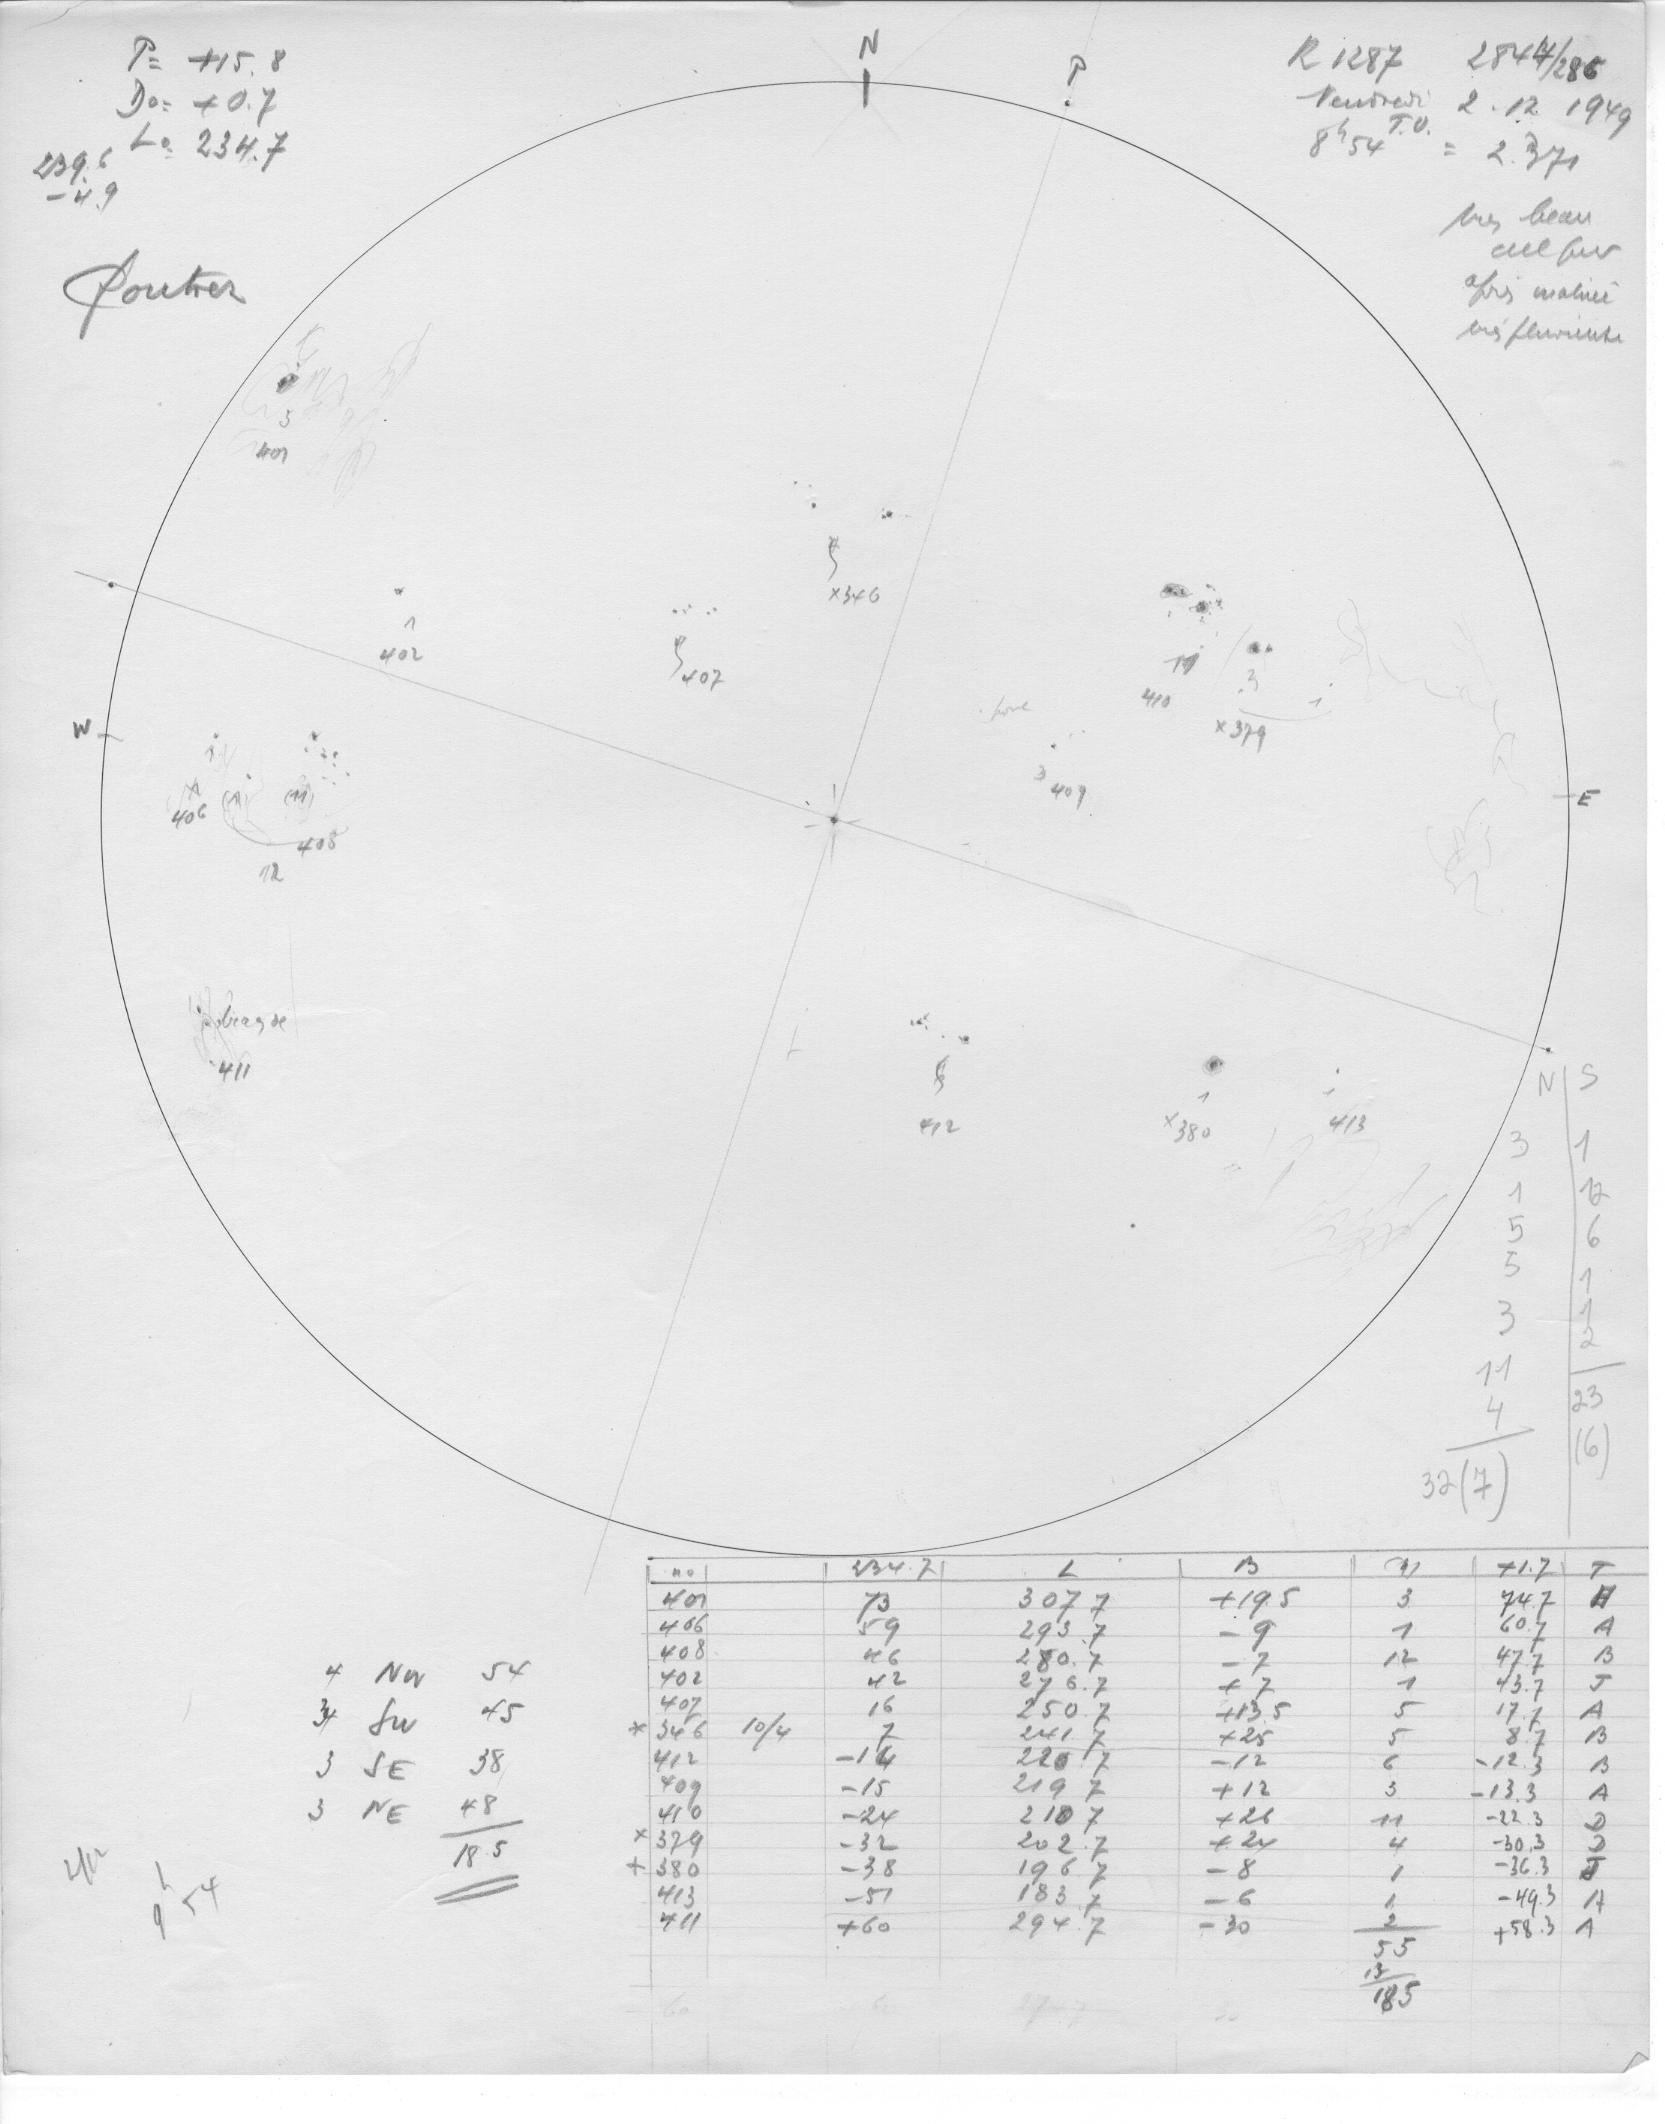 P= +15.8
Do= +0.7
Lo= 234.7
239.6
-4.9
N
P
R 1287 2844/286
Vendredi 2.12 1949
8h54 T.U. = 2.371
très beau
ciel pur
après matinée
très pluvieuse
3
401
x346
1
402
407
11
410
3
1
x379
pore
3
409
W
E
1
406
(1)
(11)
408
12
411
6
412
1
x380
1
413
N S
3 1
1 12
5 6
5 1
3 1
11 2
4 23
32(7) (6)
no 234.7 L B +1.7 T
401 73 307.7 +19.5 3 74.7 H
406 59 293.7 -9 1 60.7 A
408 46 280.7 -7 12 47.7 B
402 42 276.7 +7 1 43.7 J
407 16 250.7 +13.5 5 17.7 A
*346 10/4 7 241.7 +25 5 8.7 B
412 -14 220.7 -12 6 -12.3 B
409 -15 219.7 +12 3 -13.3 A
410 -24 210.7 +26 11 -22.3 D
x379 -32 202.7 +24 4 -30.3 D
+380 -38 196.7 -8 1 -36.3 J
413 -51 183.7 -6 1 -49.3 A
411 +60 294.7 -30 2 +58.3 A
55
13
185
4 NW 54
SW 45
3 SE 38
3 NE 48
185
9h 54